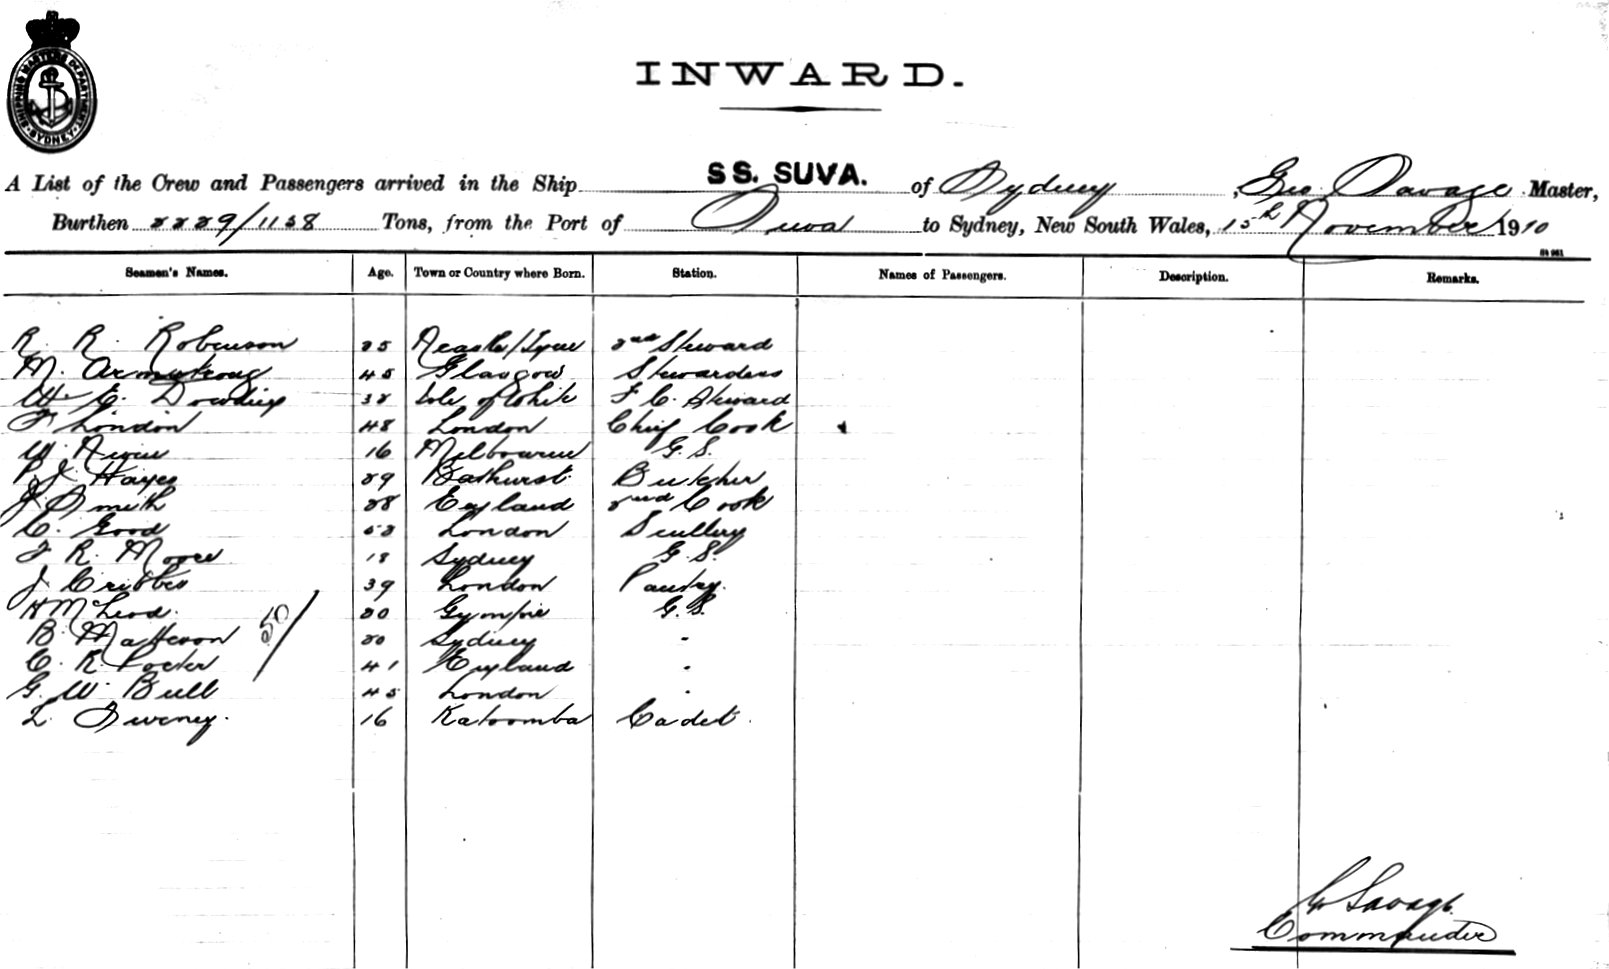 SHIPPING MASTERS DEPARTMENT SYDNEY
INWARD.
A List of the Crew and Passengers arrived in the Ship SS. SUVA. of Sydney, Geo. Savage Master,
Burthen 2229/1158 Tons, from the Port of Suva to Sydney, New South Wales, 15th November 1910
Seamen's Names. Age. Town or Country where Born. Station. Names of Passengers. Description. Remarks.
R. R. Robinson 25 Ncastle/Tyne 2nd Steward
M. Armstrong 45 Glasgow Stewardess
W. E. Dowding 32 Isle of White F. C. Steward
F London 48 London Chief Cook
W. 16 Melbourne G.S.
P. J. Hayes 29 Bathurst Butcher
J. Smith 28 England 2nd Cook
C. Good 53 London Scullery
F R. Moore 18 Sydney G.S.
J. Cribbes 39 London Pantry.
H McLeod. 20 Gympie G.S.
B. Matteson 20 Sydney "
50/
C. R. Porter 41 England "
G. W. Bull 45 London "
L. Sweney. 16 Katoomba Cadet.
G Savage
Commander